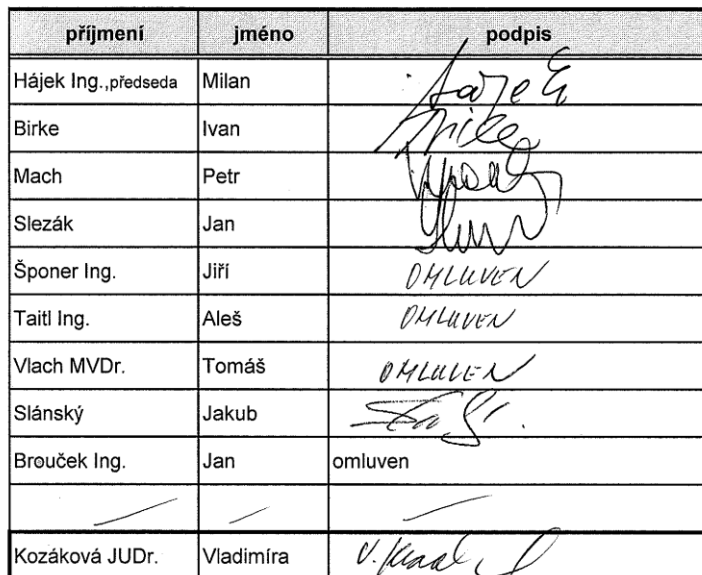 příjmení jméno podpis
Hájek Ing.,předseda Milan
Birke Ivan
Mach Petr
Slezák Jan
Šponer Ing. Jiří OMLUVEN
Taitl Ing. Aleš OMLUVEN
Vlach MVDr. Tomáš OMLUVEN
Slánský Jakub
Brouček Ing. Jan omluven
Kozáková JUDr. Vladimíra